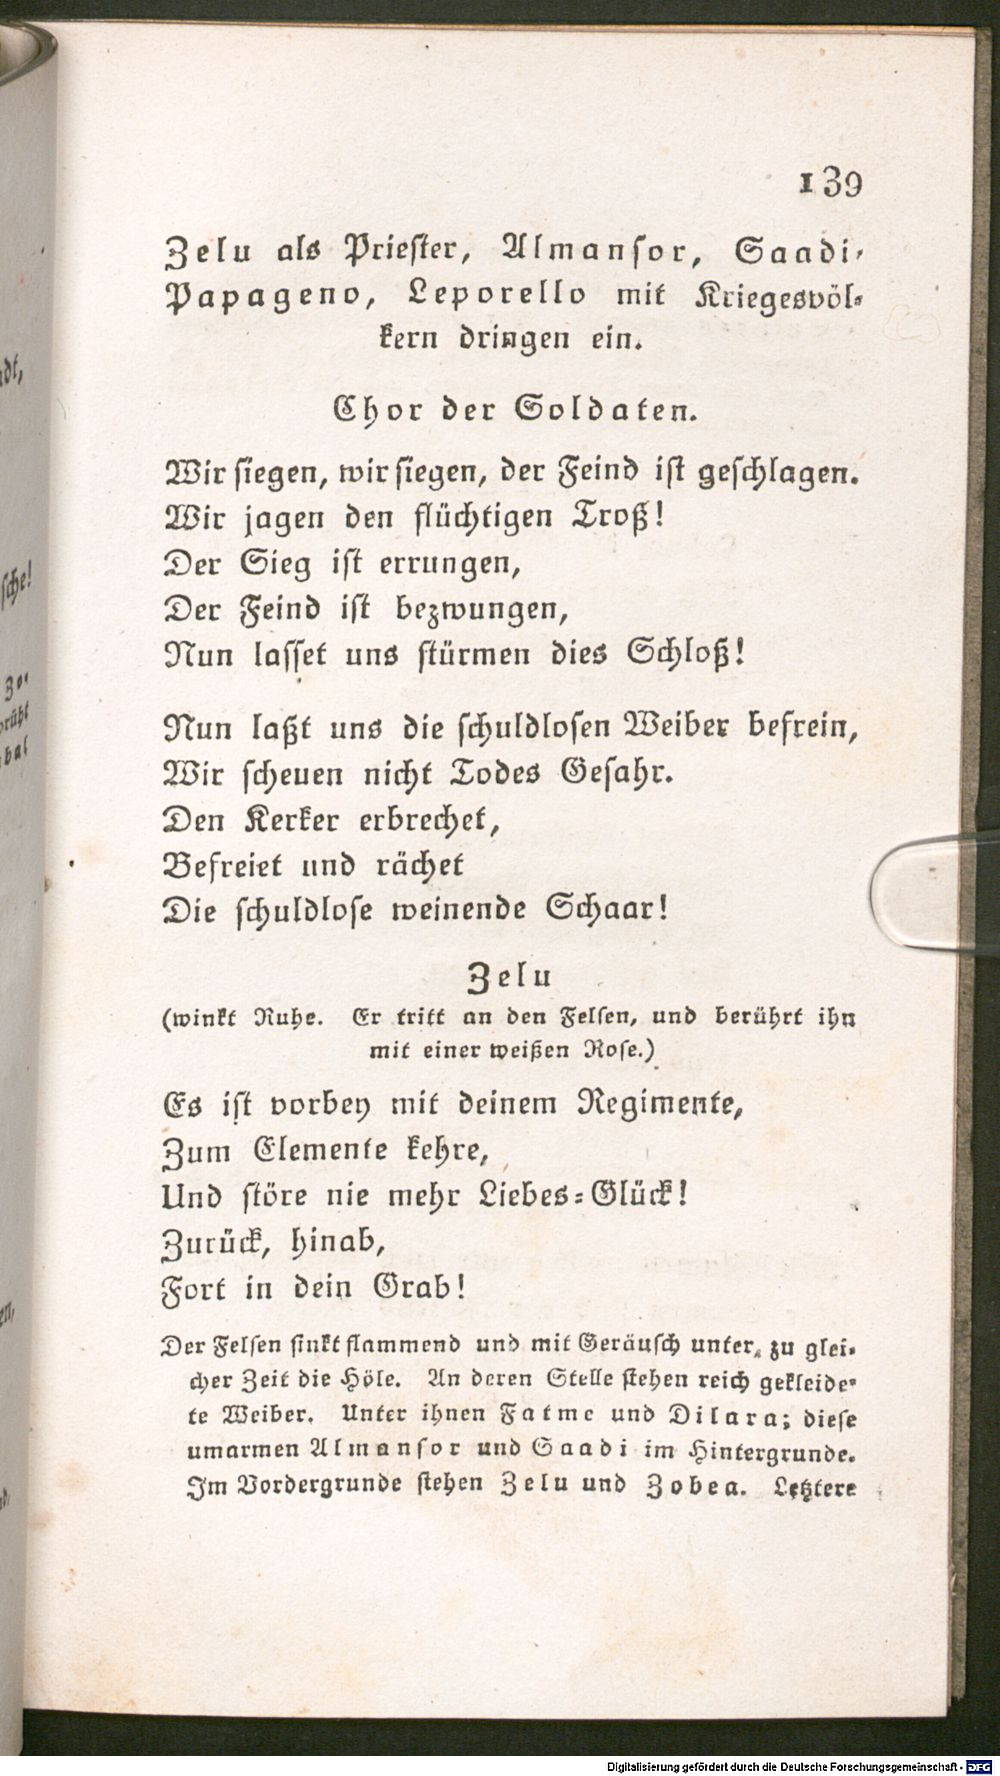 139
Zelu als Prieſter, Almanſor, Saadi,
Papageno, Leporello mit Kriegesvöl-
kern dringen ein.
Chor der Soldaten.
Wir ſiegen, wir ſiegen, der Feind iſt geſchlagen.
Wir jagen den flüchtigen Troß!
Der Sieg iſt errungen,
Der Feind iſt bezwungen,
Nun laſſet uns ſtürmen dies Schloß!
Nun laßt uns die ſchuldloſen Weiber befrein,
Wir ſcheuen nicht Todes Gefahr.
Den Kerker erbrechet,
Befreiet und rächet
Die ſchuldloſe weinende Schaar!
Zelu
(winkt Ruhe. Er tritt an den Felſen, und berührt ihn
mit einer weißen Roſe.)
Es iſt vorbey mit deinem Regimente,
Zum Elemente kehre,
Und ſtöre nie mehr Liebes-Glück!
Zurück, hinab,
Fort in dein Grab!
Der Felſen ſinkt flammend und mit Geräuſch unter, zu glei-
cher Zeit die Höle. An deren Stelle ſtehen reich gekleide-
te Weiber. Unter ihnen Fatme und Dilara; dieſe
umarmen Almanſor und Saadi im Hintergrunde.
Im Vordergrunde ſtehen Zelu und Zobea. Letztere
Digitalisierung gefördert durch die Deutsche Forschungsgemeinschaft - DFG